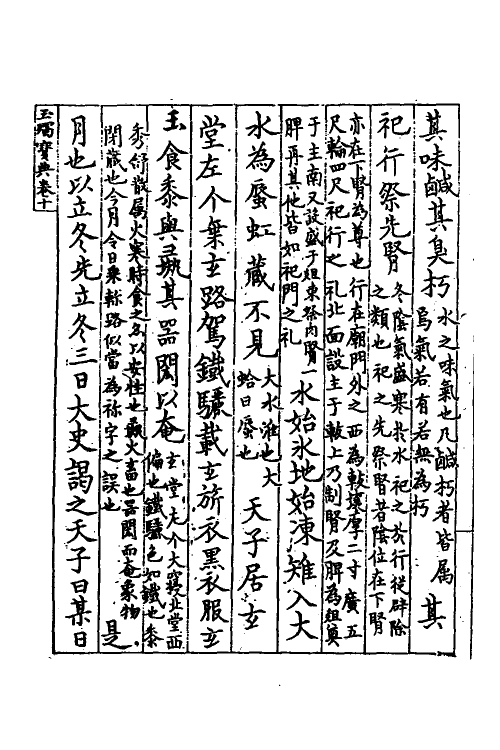 其味鹹其臭朽水之味氣也凡鹹朽者皆属焉氣若有若無為朽其
祀行祭先腎冬陰氣盛寒於水祀之於行從辟除之類也祀之先祭腎者陰位在下腎
亦在下腎為尊也行在廟門外之西為軷壤厚二寸廣五尺輪四尺祀行之礼北面設主于軷上乃制腎及脾為俎奠
于主南又設盛于俎東祭肉腎一脾再其他皆如祀門之礼水始氷地始凍雉入大
水為蜃虹蔵不見大水淮也大蛤曰蜃也天子居玄
堂左个乗玄路駕鐵驪載玄旂衣黒衣服玄
玉食黍與彘其器閎以奄玄堂左个大寝北堂西偏也鐵驪色如鐵也黍
秀舒散属火寒時食之亦以安性也彘水畜也器閎而奄象物閉蔵也今月令曰乗軫路似當為袗字之誤也是
月也以立冬先立冬三日大史謁之天子曰某日
玉燭寶典巻十